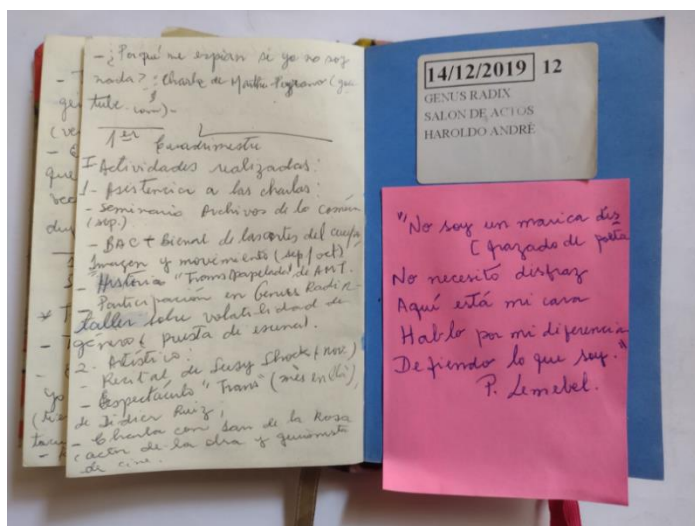 - ¿Porqué me espian si yo no soy
nada? : Charla de Martha
tube.com) -
1er Cuadrimestre
I Actividades realizadas:
1- Asistencia a las charlas:
- Seminario Archivos de lo Común
(sep.)
- BAC + Bienal de las artes del cuerpo,
imagen y movimiento (sep/oct)
- Historia "Trans de AMT.
- Participación en Genus Radix -
taller sobre volatilidad de
género (puesta de escena).
2. Artístico:
- Recital de Susy Shock (nov.)
- Espectáculo "Trans" (més en llà),
de Didier Ruiz;
- Charla con San de la Rosa
(actor de la obra y guionista
de cine.
14/12/2019 12
GENUS RADIX
SALON DE ACTOS
HAROLDO ANDRÉ
"No soy un marica dis
[frazado de poeta
No necesito disfraz
Aquí está mi cara
Hablo por mi diferencia
Defiendo lo que soy."
P. Lemebel.